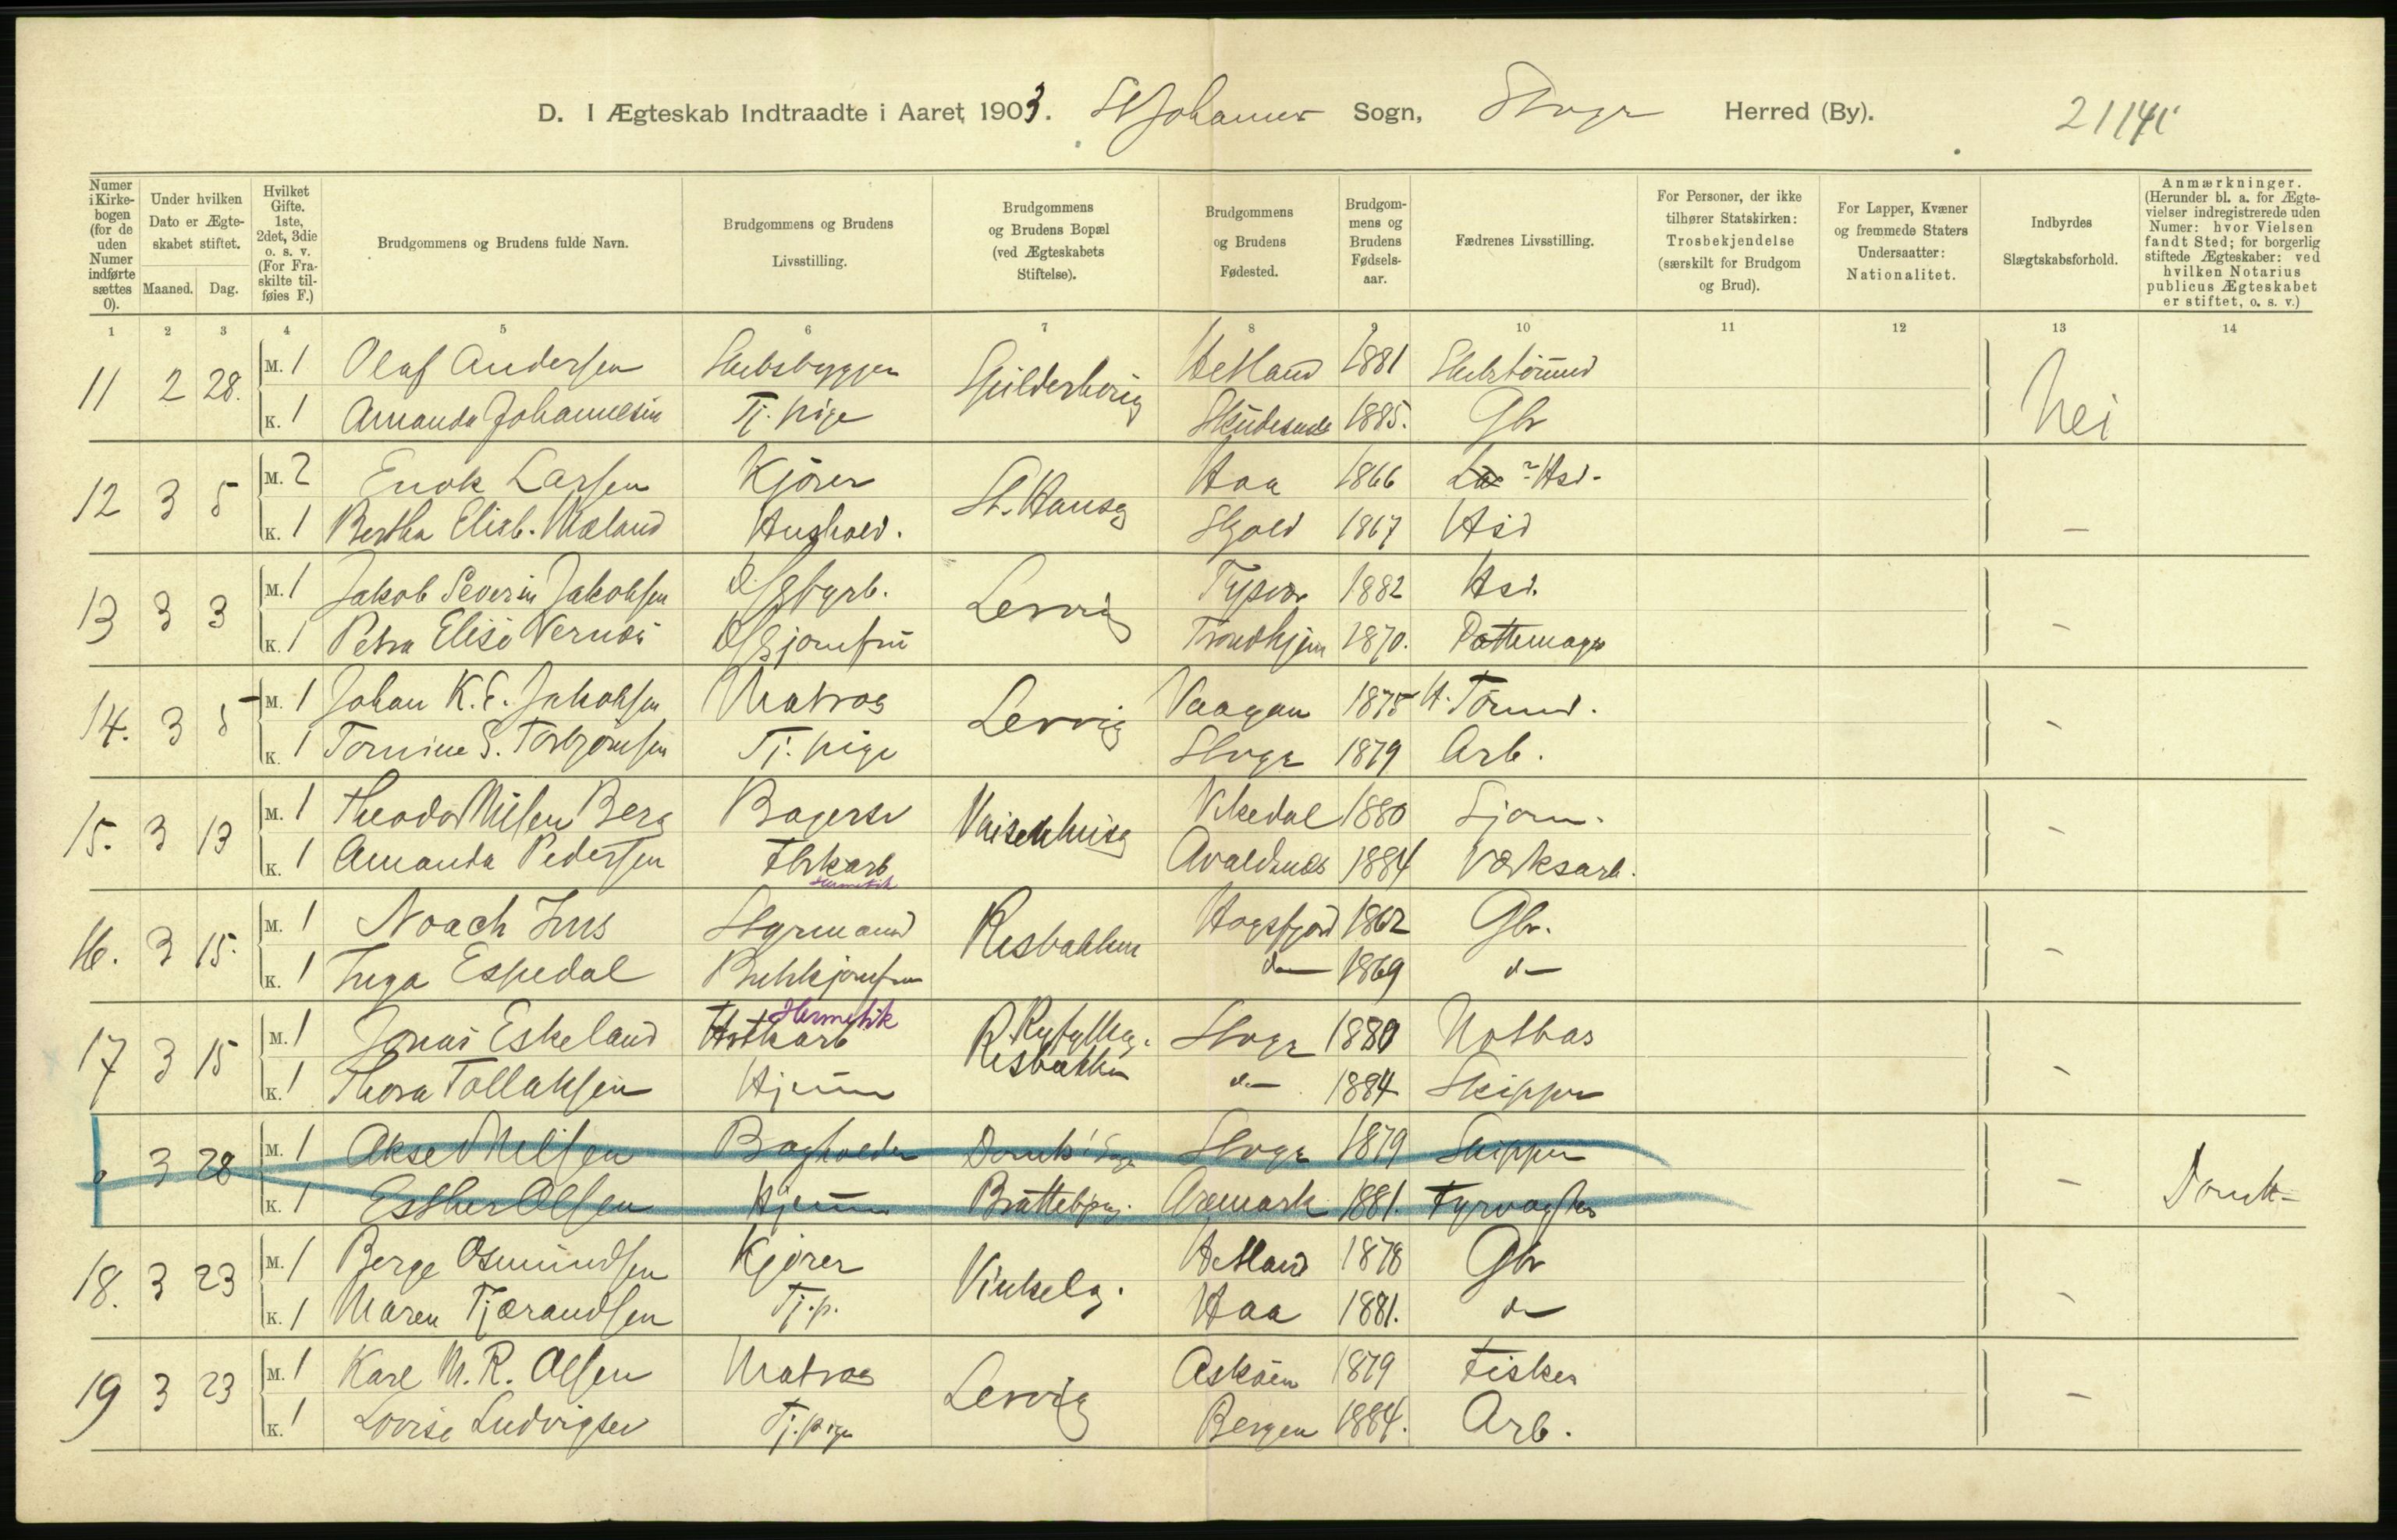 D. I Ægteskab Indtraadte i Aaret 1903. St Johannes Sogn, Stvgr Herred (By). 21141
Numer i Kirkebogen (for de uden Numer indførte sættes 0).
Under hvilken Dato er Ægteskabet stiftet.
Maaned. Dag.
Hvilket Gifte. 1ste, 2det, 3die o. s. v. (For Fraskilte tilføies F.)
Brudgommens og Brudens fulde Navn.
Brudgommens og Brudens Livsstilling.
Brudgommens og Brudens Bopæl (ved Ægteskabets Stiftelse).
Brudgommens og Brudens Fødested.
Brudgommens og Brudens Fødselsaar.
Fædrenes Livsstilling.
For Personer, der ikke tilhører Statskirken: Trosbekjendelse (særskilt for Brudgom og Brud).
For Lapper, Kvæner og fremmede Staters Undersaatter: Nationalitet.
Indbyrdes Slægtskabsforhold.
Anmærkninger. (Herunder bl. a. for Ægtevielser indregistrerede uden Numer: hvor Vielsen fandt Sted; for borgerlig stiftede Ægteskaber: ved hvilken Notarius publicus Ægteskabet er stiftet, o. s. v.)
1 2 3 4 5 6 7 8 9 10 11 12 13 14
11 2 28. M. 1 Olaf Andersen Skibsbygger Gilderberig Hetland 1881 Skibstømmd Nei
K. 1 Amanda Johannesen Tj. pige Skudesnes 1885. Gbr
12 3 5 M. 2 Enok Larsen Kjører St. Hansg Haa 1866 Hsd.
K. 1 Bertha Elisb. Mæland Hushold. Skjold 1867 Hsd —
13 3 3 M. 1 Jakob Severin Jakobsen Ølbrb. Lervig Tysvær 1882 Hsd. –
K. 1 Petra Elise Trondhjem 1870. Pottemager
14. 3 5 M. 1 Johan K. E. Jakobsen Matros Lervig Vaagan 1875 H. Tømmd. –
K. 1 Tornine S. Torbjørnsen Tj. pige Stvgr 1879 Arb.
15. 3 13 M. 1 Theodor Nilsen Berg Bagersv Vaisenhusg Vikedal 1880 Sjøm. –
K. 1 Amanda Pedersen Fbrkarb Avaldsnes 1884 Værksarb.
Hermetik
16. 3 15. M. 1 Noach Ims Styrmand Risbakken Høgsfjord 1862 Gbr. –
K. 1 Inga Espedal Butikjomfru do 1869 do
Hermetik
17 3 15 M. 1 Jonas Eskeland Fbrkarb R. Ryfylkeg. Stvgr 1880 Notbas –
K. 1 Thora Tollaksen Hjemme Risbakken do 1884 Skipper
0 3 28 M. 1 Aksel Nilsen Bogholder Domk. Sogn Stvgr 1879 Skipper –
K. 1 Esther Olsen Hjemme Brattebjerg. Aremark 1881. Fyrvogter Domk-
18. 3 23 M. 1 Berge Osmundsen Kjører Vinkelg. Hetland 1878 Gbr –
K. 1 Maren Tjærandsen Tj. p. Haa 1881. do
19 3 23 M. 1 Karl M. R. Olsen Matros Lervig Askøen 1879 Fisker –
K. 1 Lovise Ludvigsen Tj. pige Bergen 1884. Arb.